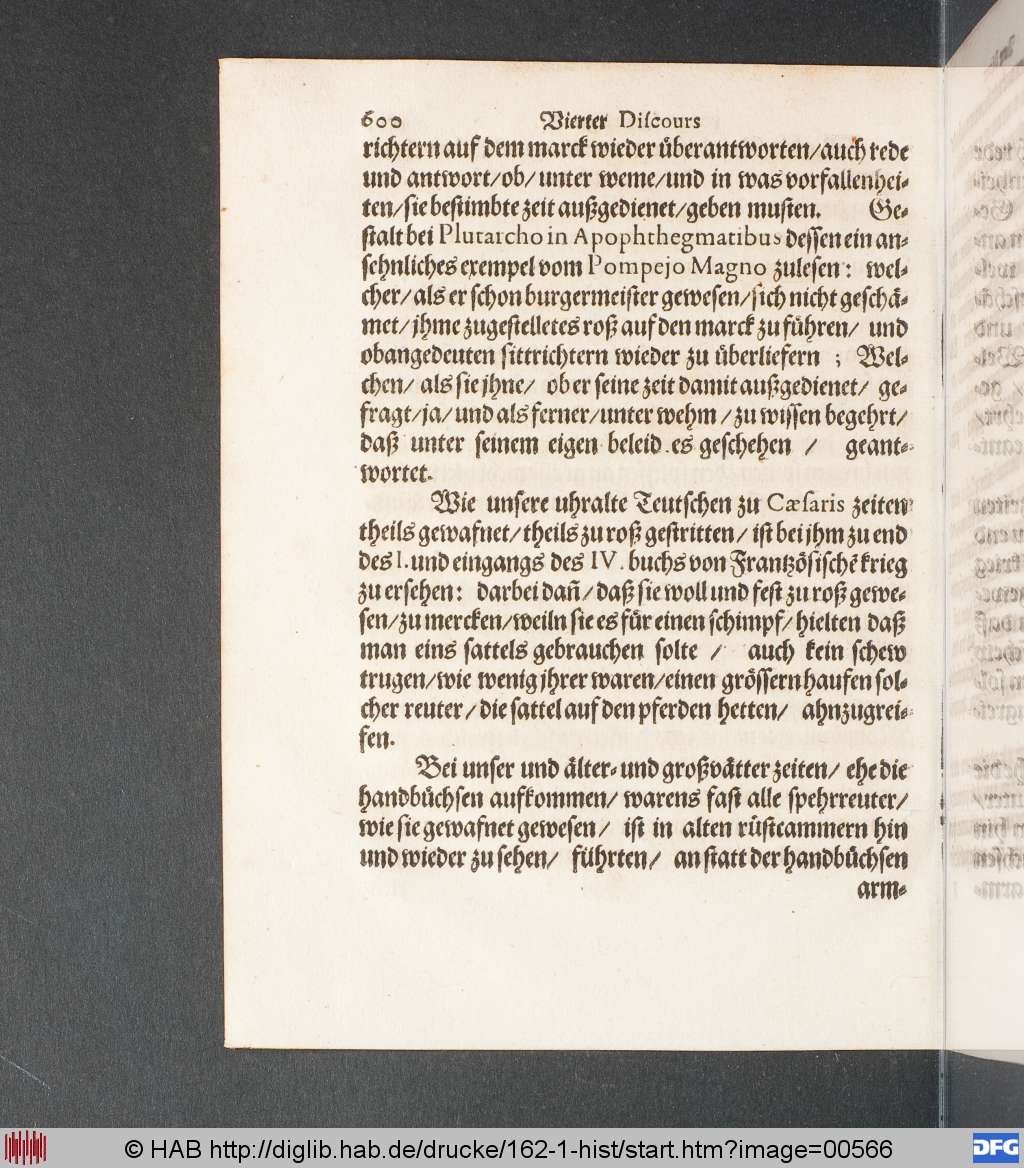 600 Vierter Diſcours
richtern auf dem marck wieder uͤberantworten/auch rede
und antwort/ob/unter weme/und in was vorfallenhei⸗
ten/ſie beſtimbte zeit außgedienet/geben muſten. Ge⸗
ſtalt bei Plutarcho in Apophthegmatibus deſſen ein an⸗
ſehnliches exempel vom Pompejo Magno zuleſen: wel⸗
cher/als er ſchon burgermeiſter geweſen/ſich nicht geſchaͤ⸗
met/jhme zugeſtelletes roß auf den marck zu fuͤhren/ und
obangedeuten ſittrichtern wieder zu uͤberliefern ; Wel⸗
chen/ als ſie jhne/ ob er ſeine zeit damit außgedienet/ ge⸗
fragt/ja/und als ferner/unter wehm/zu wiſſen begehrt/
daß unter ſeinem eigen beleid.es geſchehen / geant⸗
wortet.
Wie unſere uhralte Teutſchen zu Cæſaris zeiten
theils gewafnet/theils zu roß geſtritten/ iſt bei jhm zu end
des I. und eingangs des IV. buchs von Frantzoͤſiſchē krieg
zu erſehen: darbei dañ/daß ſie woll und feſt zu roß gewe⸗
ſen/zu mercken/weiln ſie es fuͤr einen ſchimpf/hielten daß
man eins ſattels gebrauchen ſolte / auch kein ſchew
trugen/wie wenig jhrer waren/einen groͤſſern haufen ſol⸗
cher reuter/die ſattel auf den pferden hetten/ ahnzugrei⸗
fen.
Bei unſer und aͤlter⸗ und großvaͤtter zeiten/ ehe die
handbuͤchſen aufkommen/ warens faſt alle ſpehrreuter/
wie ſie gewafnet geweſen/ iſt in alten ruͤſtcammern hin
und wieder zu ſehen/ fuͤhrten/ an ſtatt der handbuͤchſen
arm⸗
© HAB http://diglib.hab.de/drucke/162-1-hist/start.htm?image=00566
DFG